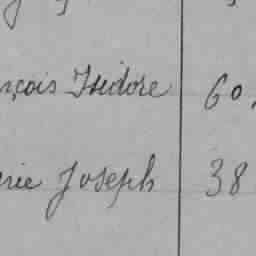 nçois Isidore 60.
rie Joseph 38